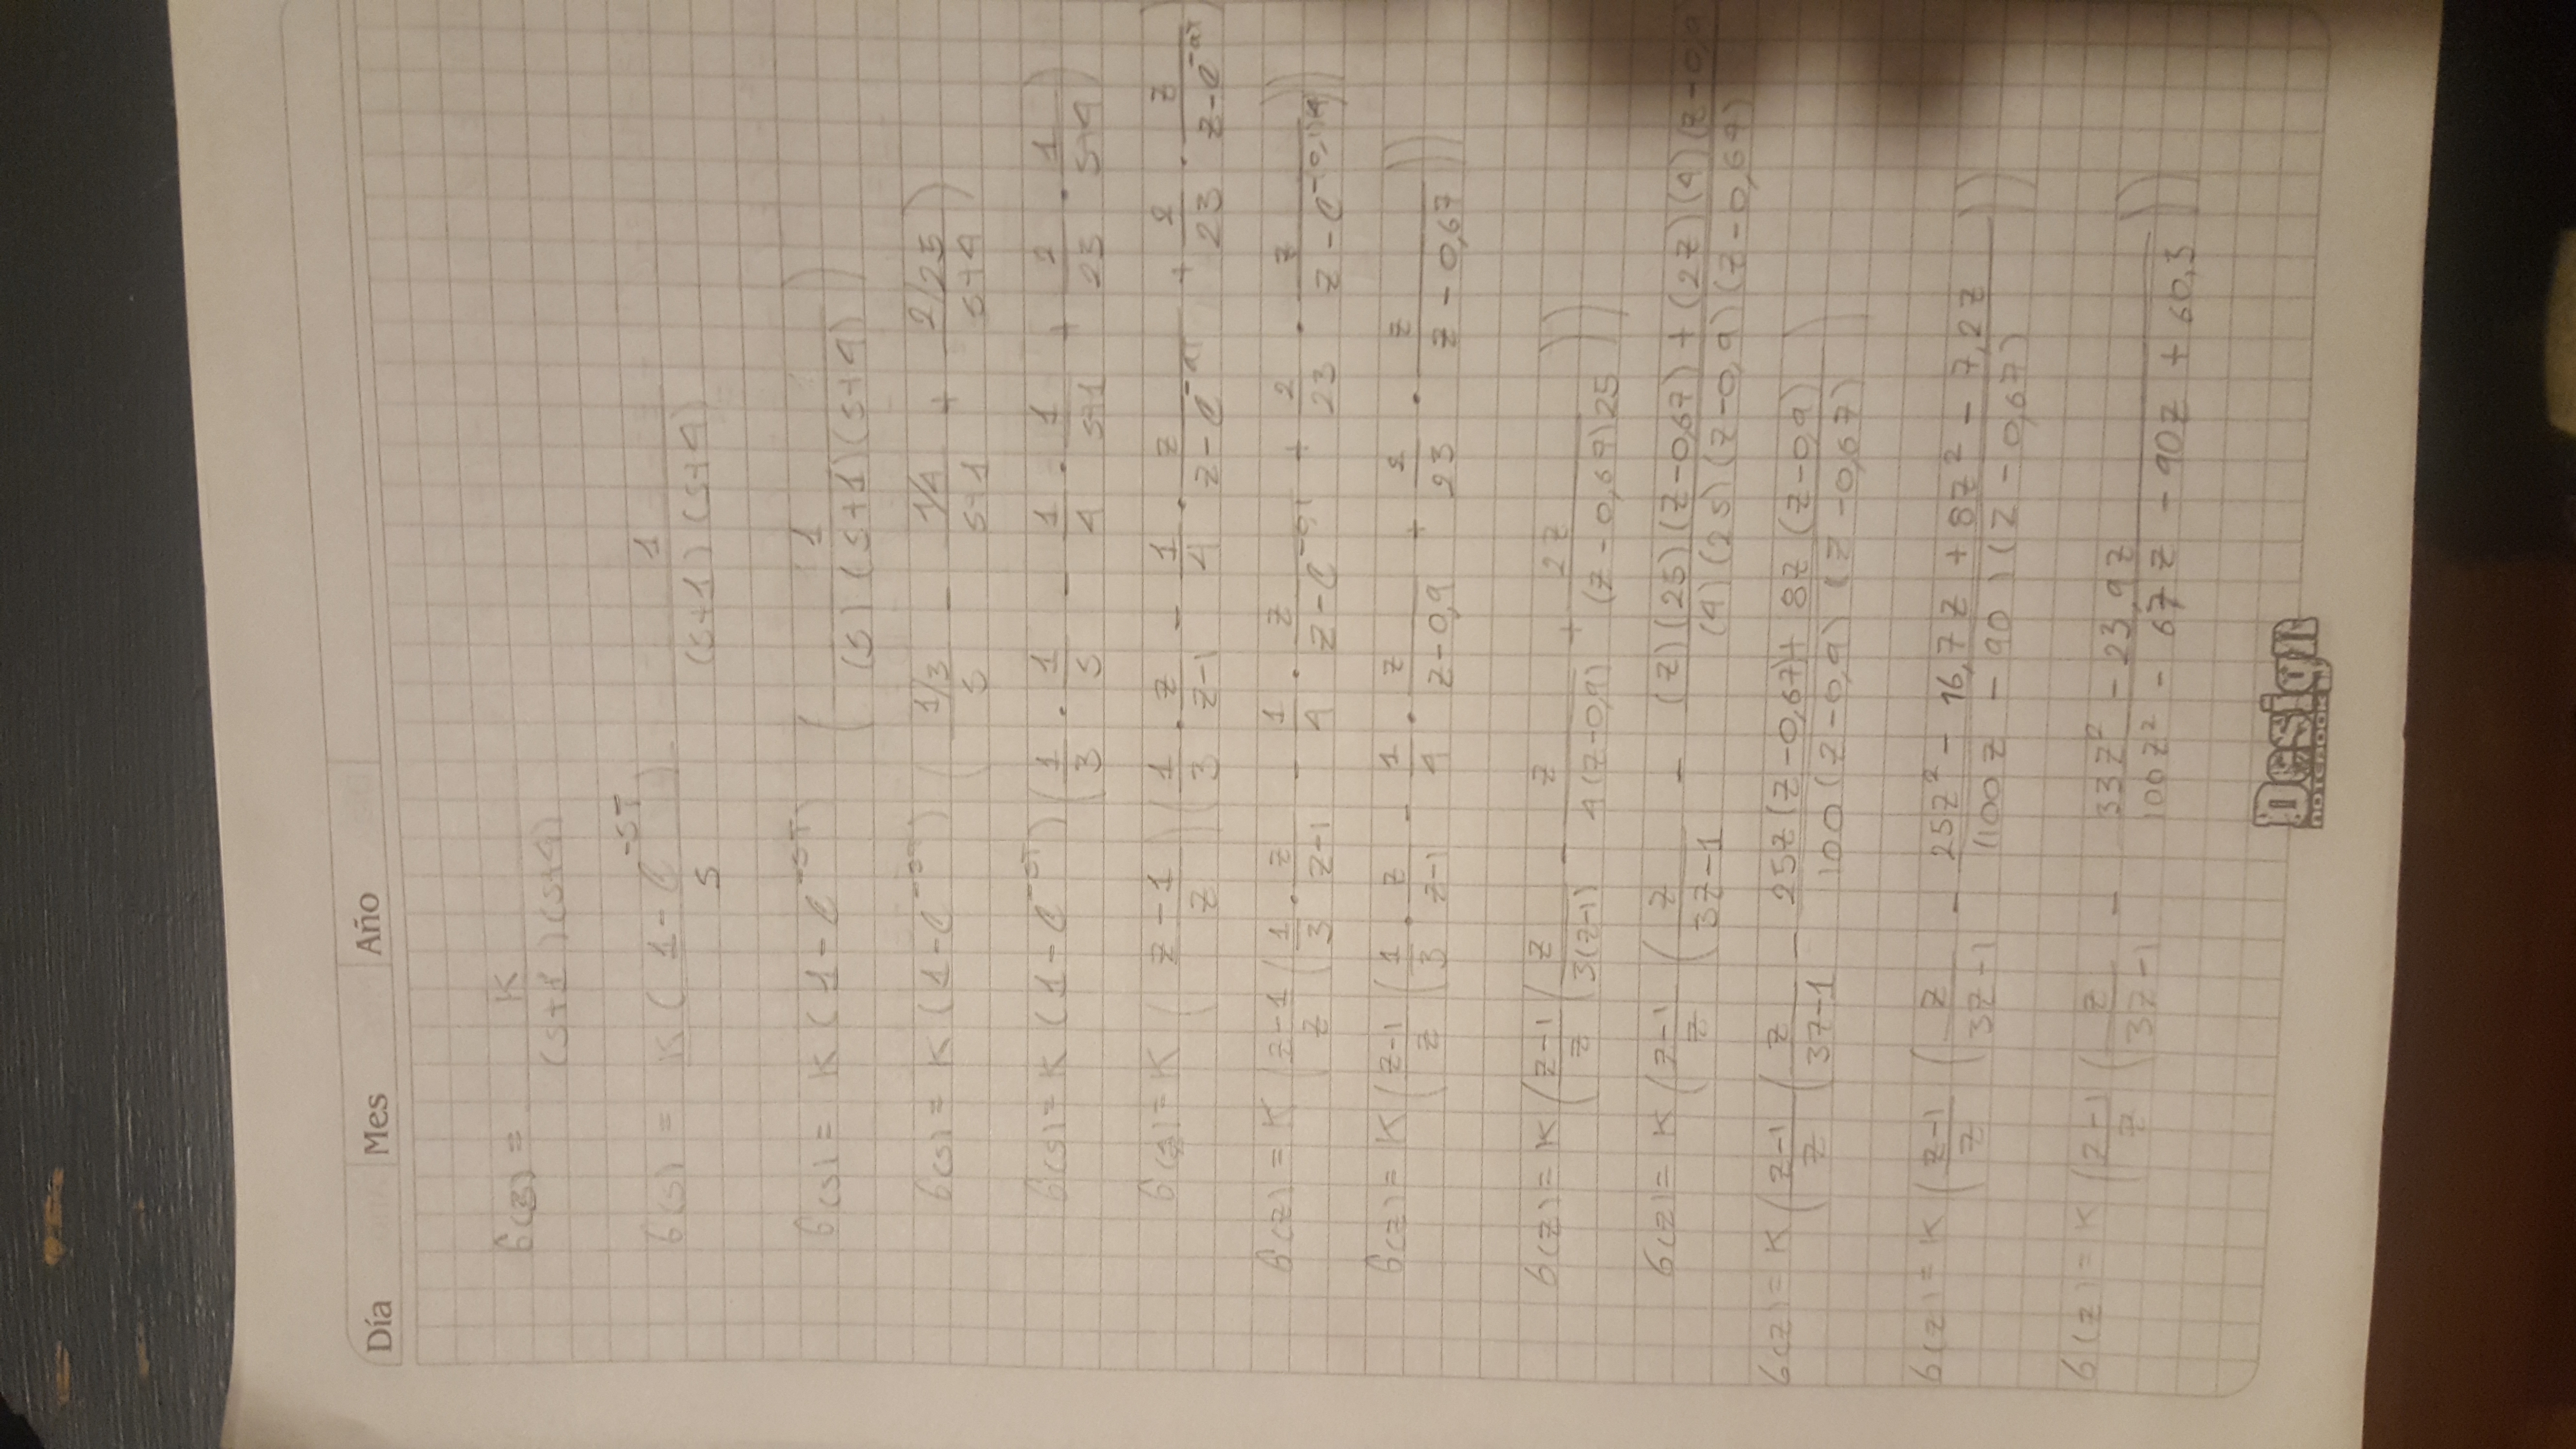 Día Mes Año
G(s) = K / (s+1)(s+4)
G(s) = K(1-e^-ST) / s · 1 / (s+1)(s+4)
G(s) = K(1-e^-ST) (1 / (s)(s+1)(s+4))
G(s) = K(1-e^-ST) (1/3 / s - 1/4 / s+1 + 2/25 / s+4)
G(s) = K(1-e^-ST) (1/3 · 1/s - 1/4 · 1/s+1 + 2/25 · 1/s+4)
G(z) = K (z-1 / z) (1/3 · z/z-1 - 1/4 · z/z-e^-aT + 2/23 · z/z-e^-aT)
G(z) = K (z-1 / z (1/3 · z/z-1 - 1/4 · z/z-e^-0,1 + 2/23 · z/z-e^-(0,1)4))
G(z) = K (z-1 / z (1/3 · z/z-1 - 1/4 · z/z-0,9 + 2/23 · z/z-0,67))
G(z) = K (z-1 / z (z / 3(z-1) - z / 4(z-0,9) + 2z / (z-0,67)25))
G(z) = K (z-1 / z (z / 3z-1 - (z)(25)(z-0,67) + (2z)(4)(z-0,9 / (4)(25)(z-0,9)(z-0,67)
G(z) = K (z-1 / z (z / 3z-1 - 25z(z-0,67) + 8z(z-0,9) / 100(z-0,9)(z-0,67))
G(z) = K (z-1 / z (z / 3z-1 - 25z² - 16,7z + 8z² - 7,2z / (100z - 90)(z-0,67)))
G(z) = K (z-1 / z (z / 3z-1 - 33z² - 23,9z / 100z² - 67z - 90z + 60,3))
Design
NOTEBOOK